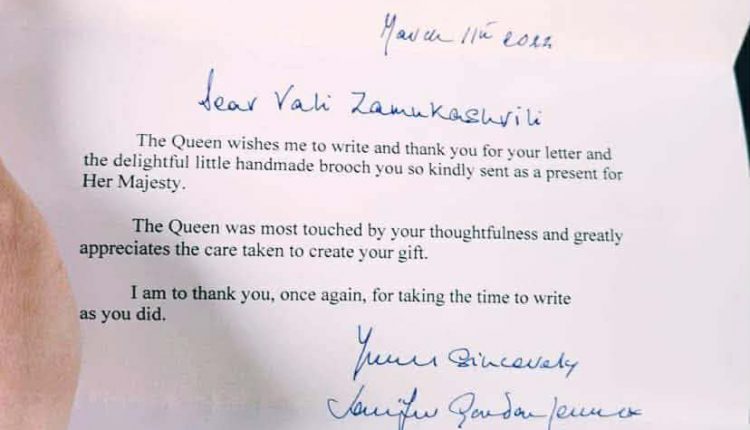 March 11th 2022
Dear Vali Zamukashvili
The Queen wishes me to write and thank you for your letter and
the delightful little handmade brooch you so kindly sent as a present for
Her Majesty.
The Queen was most touched by your thoughtfulness and greatly
appreciates the care taken to create your gift.
I am to thank you, once again, for taking the time to write
as you did.
Yours sincerely
Jennifer Gordon Lennox